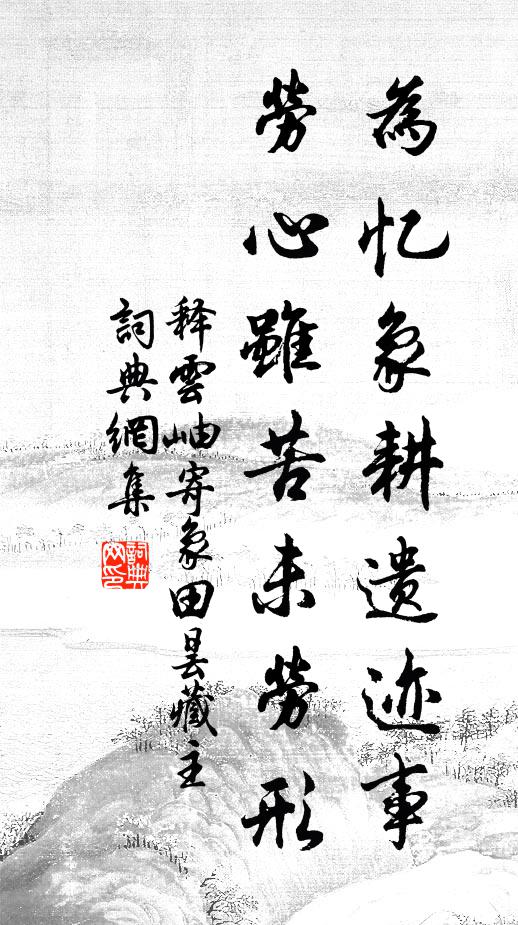 為忆象耕遗迹事
勞心雖苦未勞形
释雲岫寄象田昙藏主
詞典網集
詞典網印